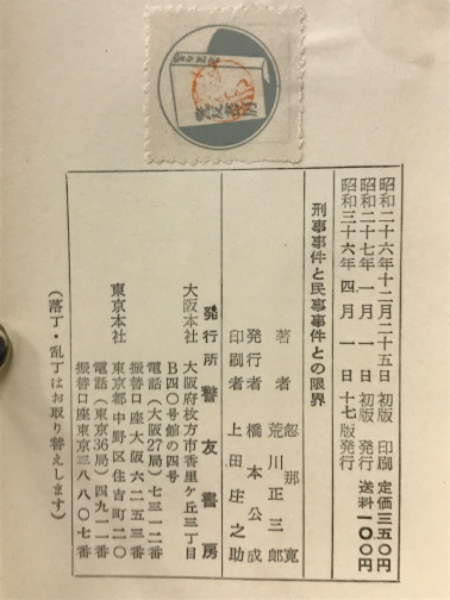 昭和二十六年十二月二十五日 初版 印刷 定価三五〇円
昭和二十七年一月一日 初版 発行 送料一〇〇円
昭和三十六年四月一日 十七版発行
刑事事件と民事事件との限界
著者 忽那寛
荒川正三郎
発行者 橋本公成
印刷者 上田庄之助
発行所 警友書房
大阪本社 大阪府枚方市香里ケ丘三丁目
B四〇号館の四号
電話(大阪27局)七三一二番
振替口座大阪六二五三番
東京本社 東京都中野区住吉町二〇
電話(東京36局)四九一一番
振替口座東京三八八〇七番
(落丁・乱丁はお取り替えします)
警友書房